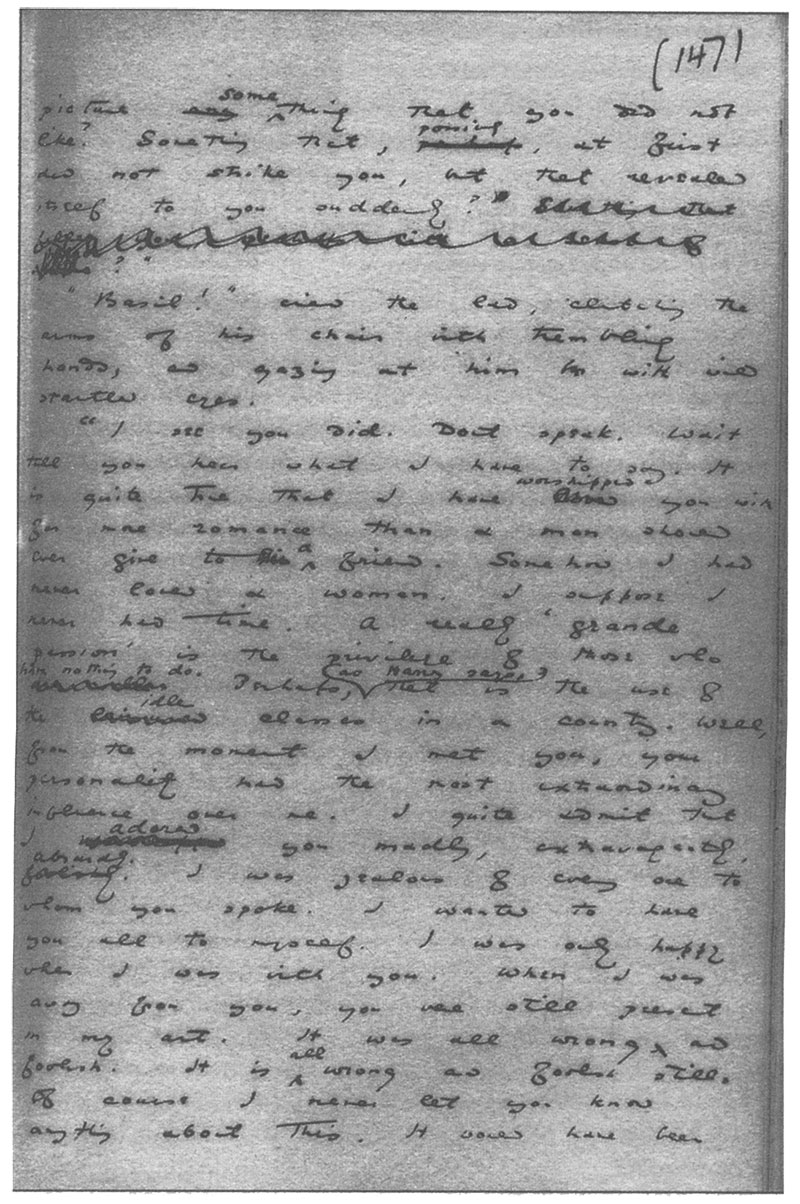 (147)
picture any some thing that you did not
like? Something that, passing perhaps, at first
did not strike you, but that revealed
itself to you suddenly?" Something that
"Basil!" cried the lad, clutching the
arms of his chair with trembling
hands, and gazing at him with wild
startled eyes.
"I see you did. Don't speak. Wait
till you hear what I have to say. It
is quite true that I have worshipped loved you with
far more romance than a man should
ever give to his a friend. Somehow I had
never loved a woman. I suppose I
never had time. A really 'grande
passion' is the privilege of those who
have nothing to do. Perhaps, (as Harry says,) that is the use of
the leisured idle classes in a country. Well,
from the moment I met you, your
personality had the most extraordinary
influence over me. I quite admit that
I adored you madly, extravagantly,
absurdly. foolishly. I was jealous of every one to
whom you spoke. I wanted to have
you all to myself. I was only happy
when I was with you. When I was
away from you, you were still present
in my art. It was all wrong, and
foolish. It is all wrong and foolish still.
Of course I never let you know
anything about this. It would have been